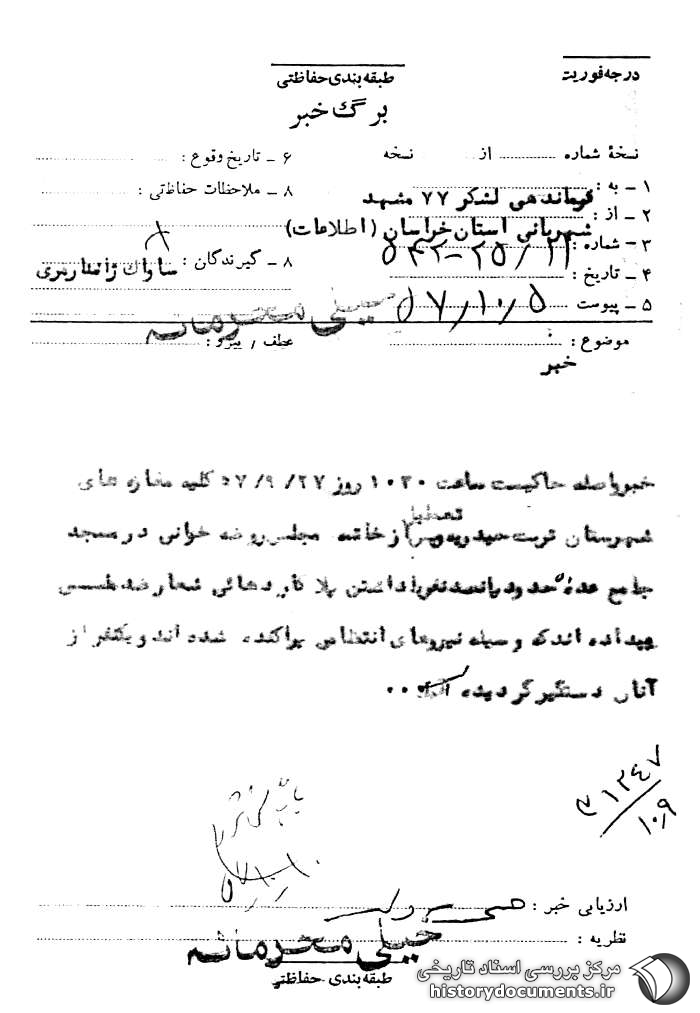 درجه فوریت
طبقه بندی حفاظتی
برگ خبر
نسخهٔ شماره ........ از ........ نسخه
۱ – به : فرماندهی لشکر ۷۷ مشهد
۲ – از : شهربانی استان خراسان (اطلاعات)
۳ – شماره :
۴ – تاریخ :
۵ – پیوست ۵۷٫۱۰٫۵
۶ – تاریخ وقوع :
۸ – ملاحظات حفاظتی :
۸ – گیرندگان : ساواک ژاندارمری
خیلی محرمانه
موضوع : خبر
عطف / پیرو :
خبرواصله حاکیست ساعت ۱۰۳۰ روز ۲۷/ ۹/ ۵۷ کلیه مغازه های
شهرستان تربت حیدریه تعطیل از خاتمه مجلس روضه خوانی در مسجد
جامع عدهٔ حدود پانصد نفر با داشتن پلا کاردهائی شعار
میداده اند که وسیله نیروهای انتظامی پراکنده شده اند و یکنفر از
آنان دستگیر گردیده ۰۰
۳۱۳۴۷
۱۰٫۹
۵۷٫۱۰٫۱۰
ارزیابی خبر :
نظریه :
خیلی محرمانه
طبقه بندی حفاظتی
مرکز بررسی اسناد تاریخی
historydocuments.ir